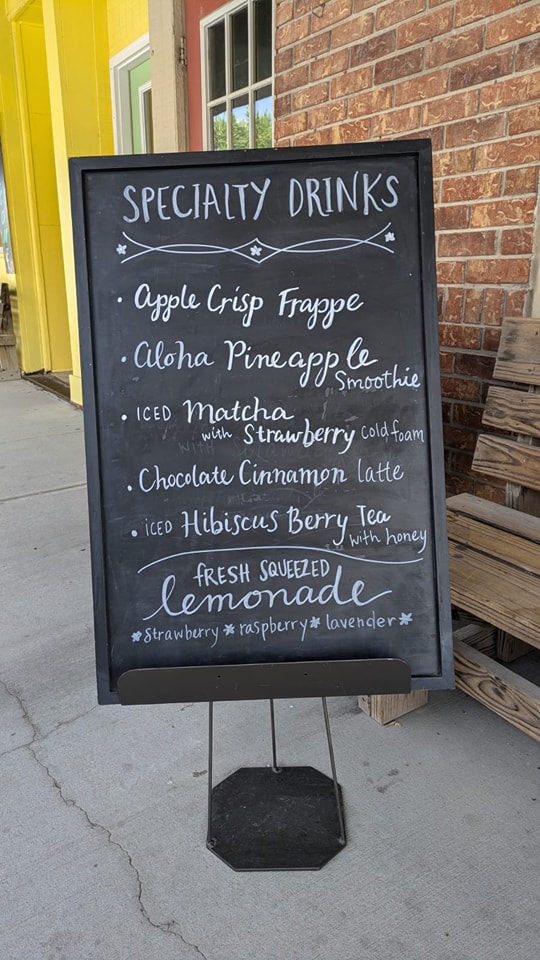 SPECIALTY DRINKS
· Apple Crisp Frappe
· Aloha Pineapple
Smoothie
· ICED Matcha
with Strawberry cold foam
· Chocolate Cinnamon latte
· ICED Hibiscus Berry Tea
with honey
FRESH SQUEEZED
lemonade
* Strawberry * raspberry * lavender *